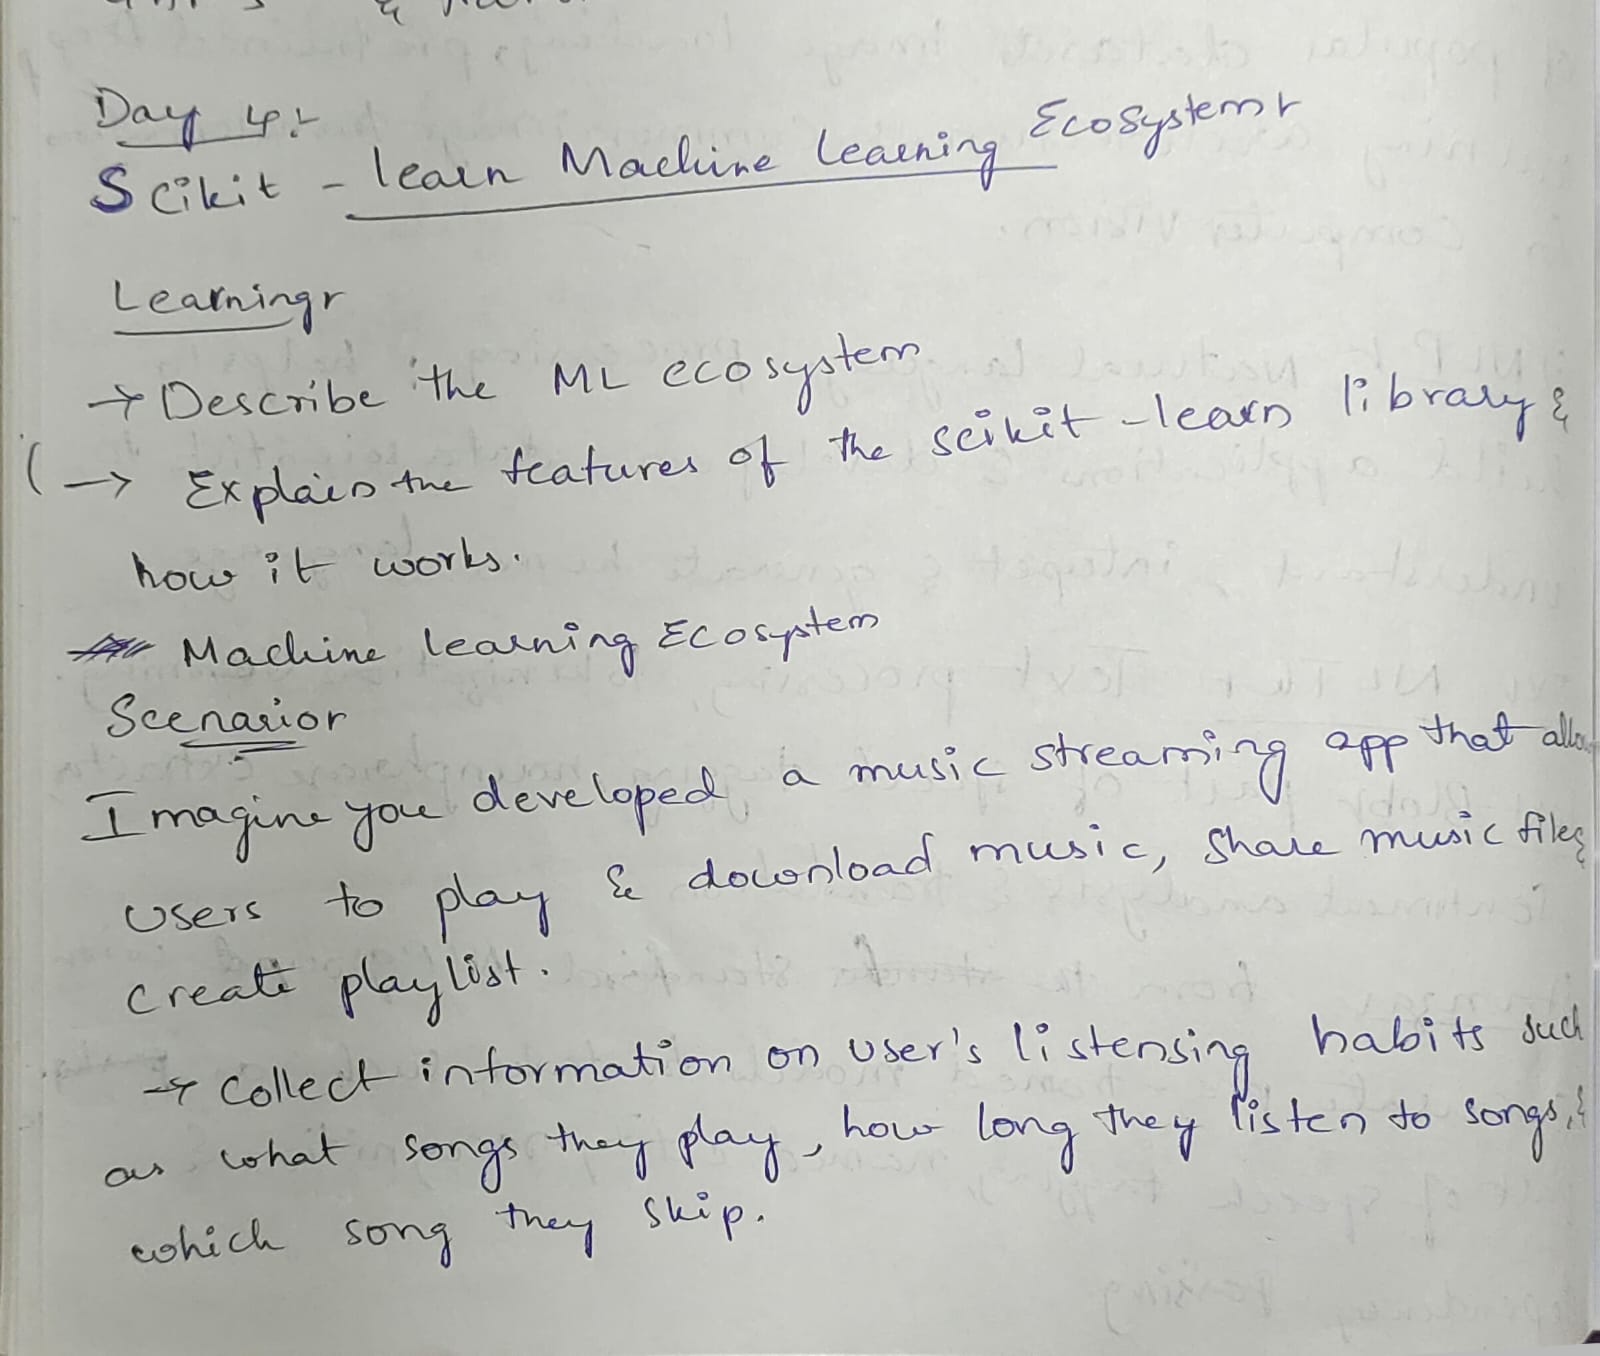 Day 4:-
Scikit - learn Machine Learning Ecosystem:-
Learning:-
→ Describe the ML ecosystem
(→ Explain the features of the scikit-learn library &
how it works.
Machine learning Ecosystem
Scenario:-
Imagine you developed a music streaming app that
users to play & download music, share music files &
create playlist.
→ Collect information on user's listensing habits such
as what songs they play, how long they listen to songs, &
which song they skip.